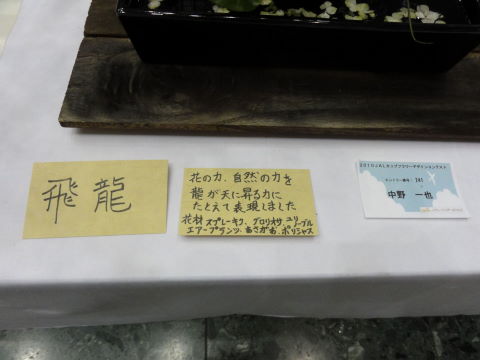 飛龍
花の力、自然の力を
龍が天に昇る力に
たとえて表現しました
花材 スプレーキク、グロリオサ、ユリ
エアープランツ、あさがお、ポリシャス
2010JALカップフラワーデザインコンテスト
エントリー番号: 241
中野 一也